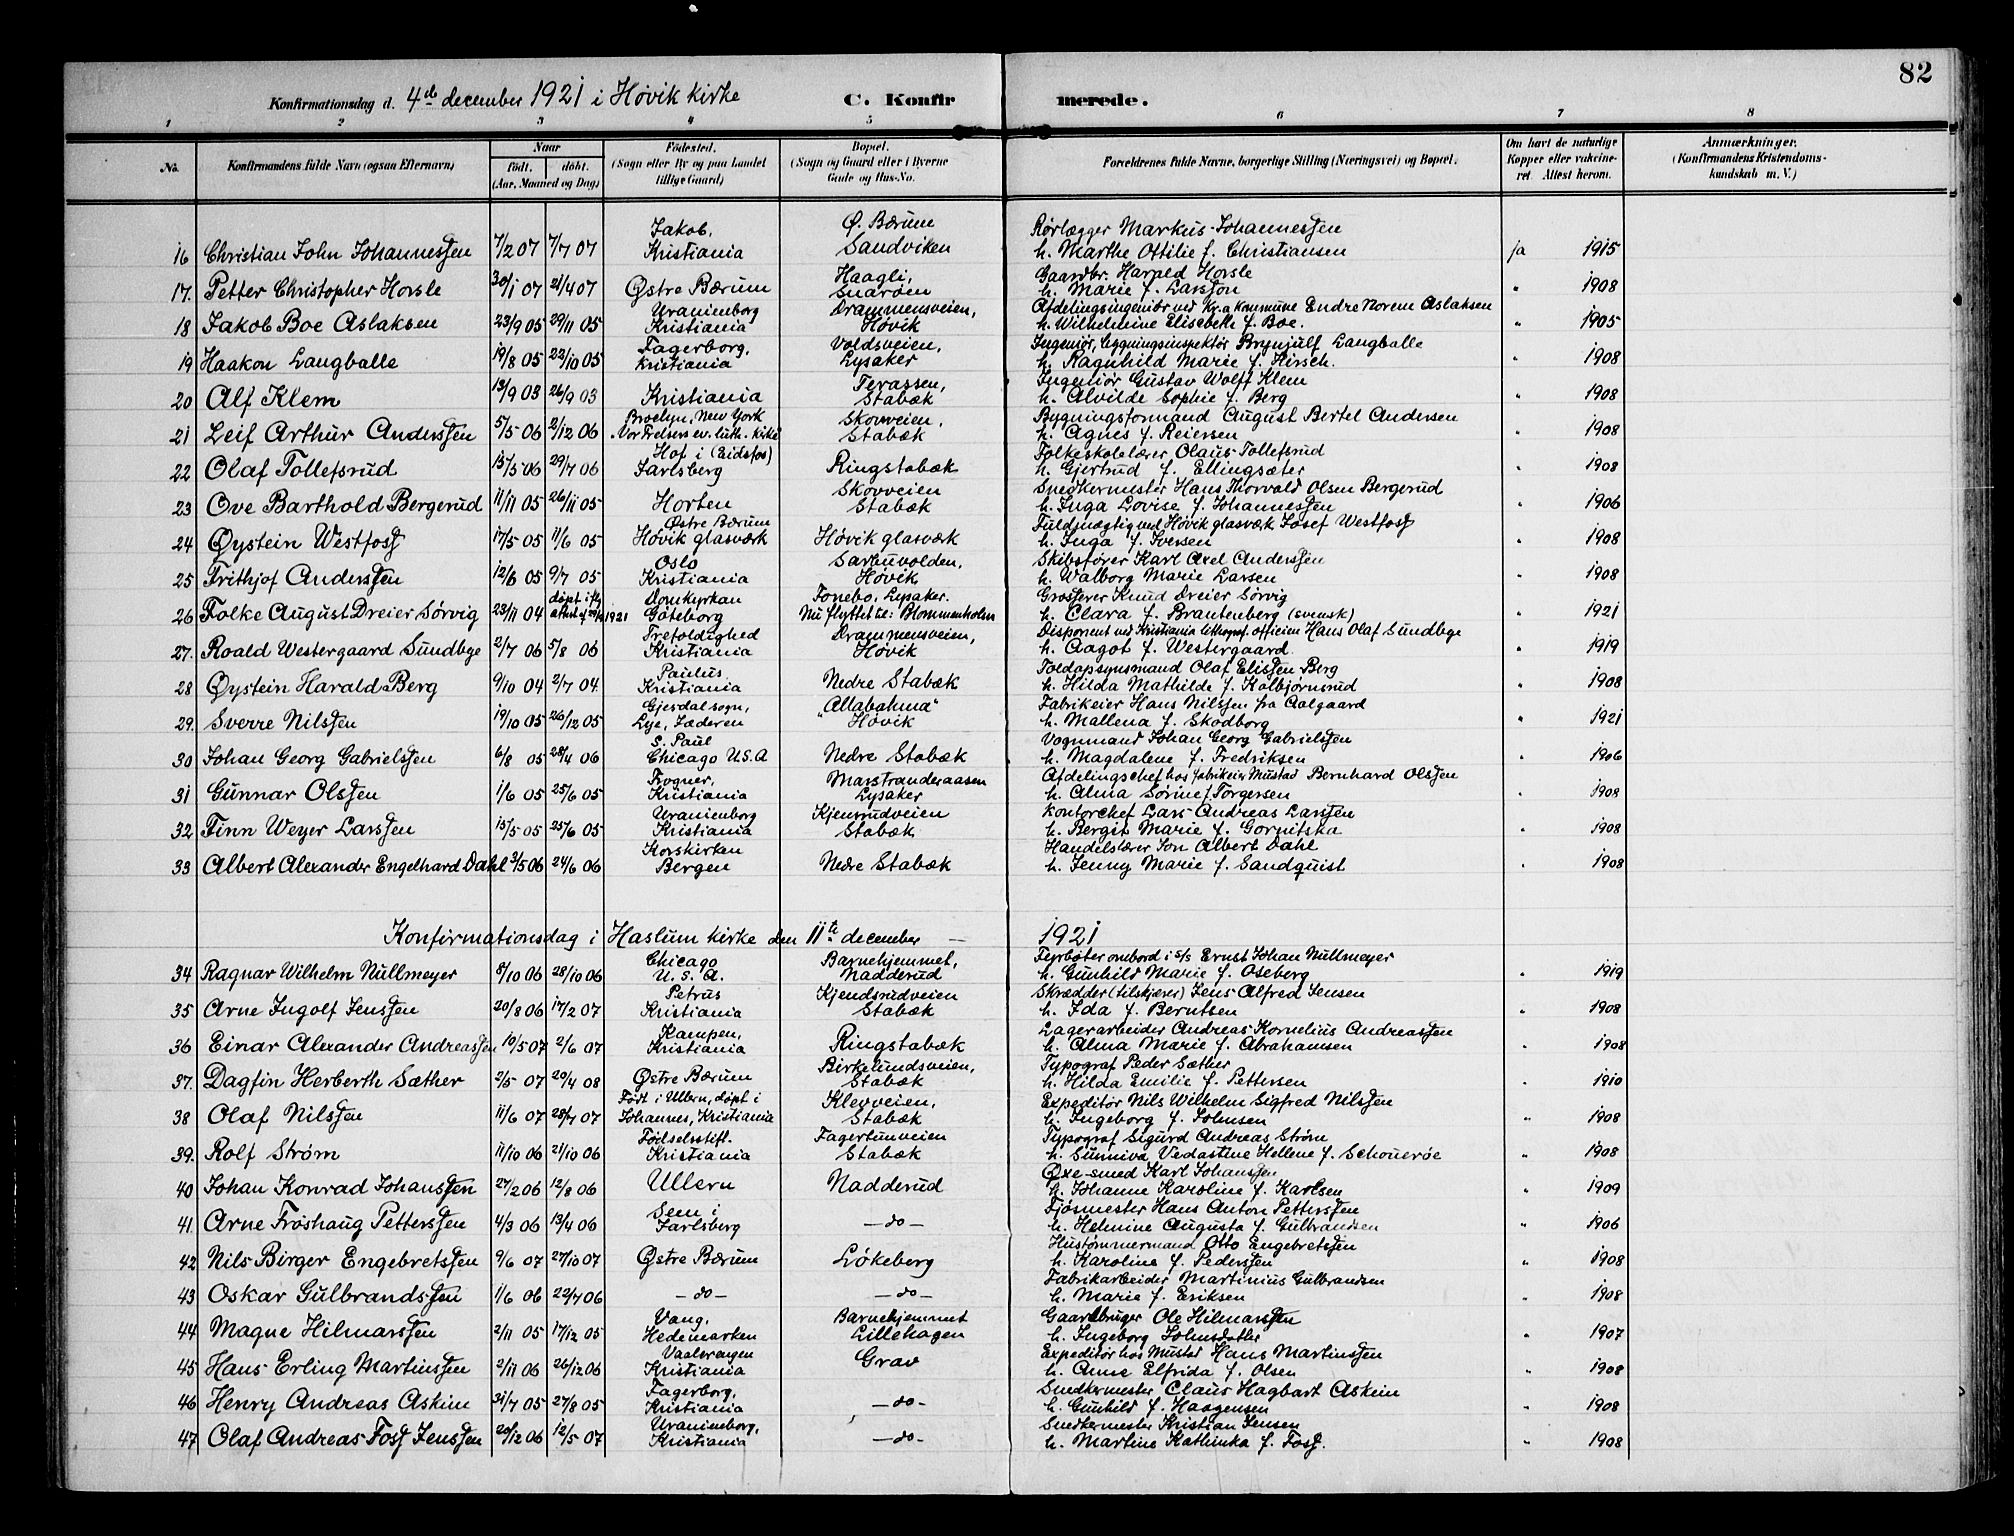 82
Konfirmationsdag d. 4de december 1921 i Høvik kirke C. Konfirmerede.
1 2 3 4 5 6 7 8
No. Konfirmandens fulde Navn (ogsaa Efternavn) Naar født. døbt. (Aar, Maaned og Dag) Fødested. (Sogn eller By og paa Landet tillige Gaard) Bopæl. (Sogn og Gaard eller i Byerne Gade og Hus-No. Forældrenes fulde Navne, borgerlige Stilling (Næringsvei) og Bopæl. Om havt de naturlige Kopper eller vakcineret. Attest herom. Anmærkninger. (Konfirmandens Kristendomskundskab m. V.)
Jakob, Ø. Bærum Rørlægger Markus Johannessen
16 Christian John Johannessen 7/2 07 7/7 07 Kristiania Sandviken h. Marthe Ottilie f. Christiansen ja 1915
Haagli, Gaardbr. Harald Horsle
17. Petter Christopher Horsle 30/1 07 21/4 07 Østre Bærum Snarøen h. Marie f. Larsson " 1908
Uranienborg Drammensveien, Afdelingsingeniør ved Kr.a kommune Endre Norem Aslaksen
18 Jakob Boe Aslaksen 23/9 05 29/11 05 Kristiania Høvik h. Wilhelmine Elisebeth f. Boe. " 1905
Fagerborg, Voldsveien, Ingeniør, bygningsinspektør Brynjulf Langballe
19 Haakon Langballe 19/8 05 22/10 05 Kristiania Lysaker h. Ragnhild Marie f. Hirsch. " 1908
Terassen, Ingeniør Gustav Wolff Klem
20 Alf Klem 13/9 03 26/9 03 Kristiania Stabæk h. Alvilde Sophie f. Berg " 1908
Broclyn, New York Skovveien, Bygningsformand August Bertel Andersen
21 Leif Arthur Anderssen 5/5 06 2/12 06 Vor Frelsers ev. luth. kirke Stabæk h. Agnes f. Reiersen " 1908
Hof i (Eidsfos) Folkeskolelærer Olaus Tollefsrud
22 Olaf Tollefsrud 15/5 06 29/7 06 Jarlsberg Ringstabæk h. Gjertrud f. Ellingsæter " 1908
Skovveien Snedkermester Hans Thorvald Olsen Bergerud
23 Ove Barthold Bergerud 11/11 05 26/11 05 Horten Stabæk h. Inga Lovise f. Johannessen " 1906
Østre Bærum Fuldmægtig ved Høvik glasværk Josef Westfoss
24 Øystein Westfoss 17/5 05 11/6 05 Høvik glasværk Høvik glasværk h. Inga f. Iversen " 1908
Oslo Sarbuvolden, Skibsfører Karl Axel Anderssen
25 Frithjof Anderssen 12/6 05 9/7 05 Kristiania Høvik h. Walborg Marie Larsen " 1908
døpt iflg Domkyrkan Tonebo, Lysaker. Grosserer Knud Dreier Sørvig
26 Folke August Dreier Sørvig 23/11 04 1921 Göteborg Nu flyttet til: Blommenholm h. Clara f. Brantenberg (svensk) " 1921
Trefoldighed Drammensveien, Disponent ved Kristiania lithograf. officien Hans Olaf Sundbye
27. Roald Westergaard Sundbye 2/7 06 5/8 06 Kristiania Høvik h. Aagot f. Westergaard " 1919
Paulus Toldopsynsmand Olaf Elissen Berg
28 Øystein Harald Berg 9/10 04 2/7 04. Kristiania Nedre Stabæk h. Hilda Mathilde f. Kolbjørnsrud " 1908
Gjesdal sogn, "Allabahma" Fabrikeier Hans Nilssen fra Aalgaard
29. Sverre Nilssen 19/10 05 26/12 05 Lye, Jæderen Høvik h. Mallena f. Skodborg " 1921
S. Paul Vognmand Johan Georg Gabrielssen
30 Johan Georg Gabrielssen 6/8 05 28/4 06 Chicago U.S.A Nedre Stabæk h. Magdalene f. Fredriksen " 1906
Frogner, Marstranderaasen Afdelingschef hos fabrikeier Mustad Bernhard Olssen
31 Gunnar Olssen 1/6 05 25/6 05 Kristiania Lysaker h. Alma Sørine f Torgersen " 1908
Uranienborg Kjensrudveien Kontorchef Lars Andreas Larssen
32 Finn Weyer Larssen 15/5 05 25/6 05 Kristiania Stabæk h. Bergit Marie f. Gornitska " 1908
Korskirken Handelslærer Jon Albert Dahl
33 Albert Alexander Engelhard Dahl 3/5 06 24/6 06 Bergen Nedre Stabæk h. Jenny Marie f. Sandquist " 1908
Konfirmationsdag i Haslum kirke den 11te december – 1921
Chicago Barnehjemmet, Fyrbøter ombord i s/s Ernst Johan Nullmeyer
34 Ragnar Wilhelm Nullmeyer 8/10 06 28/10 06 U.S.A. Nadderud h. Gunhild Marie f. Oseberg " 1919
Petrus Kjendsrudveien Skrædder (tilskjærer) Jens Alfred Jensen
35 Arne Ingolf Jenssen 20/8 06 17/2 07 Kristiania Stabæk h. Ida f. Berntsen " 1908
Kampen, Lagerarbeider Andreas Kornelius Andreassen
36 Einar Alexander Andreassen 10/5 07 2/6 07 Kristiania Ringstabæk h. Alma Marie f. Abrahamsen " 1908
Birkelundsveien, Typograf Peder Sæther
37. Dagfin Herberth Sæther 2/5 07 20/4 08 Østre Bærum Stabæk h. Hilda Emilie f. Pettersen " 1910
Født i Ullern, døpt i Klevveien, Expeditør Nils Wilhelm Sigfred Nilssen
38 Olaf Nilssen 11/6 07 28/7 07 Johannes, Kristiania Stabæk h. Ingeborg f. Johnsen " 1908
Fødselsstift. Fagertunveien Typograf Sigurd Andreas Strøm
39. Rolf Strøm 11/10 06 21/10 06 Kristiania Stabæk h. Sunniva Vedastine Hellene f. Schouerøe " 1908
Øxe-smed Karl Johanssen
40 Johan Konrad Johanssen 27/2 06 12/8 06 Ullern Nadderud h. Johanne Karoline f. Karlsen " 1909
Sem i Fjøsmester Hans Anton Petterssen
41. Arne Frøshaug Petterssen 4/3 06 13/4 06 Jarlsberg –do– h. Helmine Augusta f. Gulbrandsen " 1906
Hustømmermand Otto Engebretssen
42 Nils Birger Engebretssen 9/6 07 27/10 07 Østre Bærum Løkeberg h. Karoline f. Pederssen " 1908
Fabrikarbeider Martinius Gulbrandsen
43 Oskar Gulbrandssen 1/6 06 22/7 06 –do– –do– h. Marie f. Eriksen " 1908
Vang, Barnehjemmet Gaardbruger Ole Hilmarssen
44 Magne Hilmarssen 2/11 05 17/12 05 Hedemarken Lillehagen h. Ingeborg Johnsdatter " 1907
Vaalerengen Expeditør hos Mustad Hans Martinssen
45 Hans Erling Martinssen 2/11 06 26/12 06 Kristiania Grav h. Anne Elfrida f. Olsen " 1908
Fagerborg, Snedkermester Claus Hagbart Askim
46 Henry Andreas Askim 31/7 05 27/8 05 Kristiania –do– h. Gunhild f. Haagensen " 1908
Uranienborg, Snedkermester Kristian Jensen
47 Olaf Andreas Foss Jenssen 20/12 06 12/5 07 Kristiania –do– h. Martine Kathinka f. Foss. " 1908